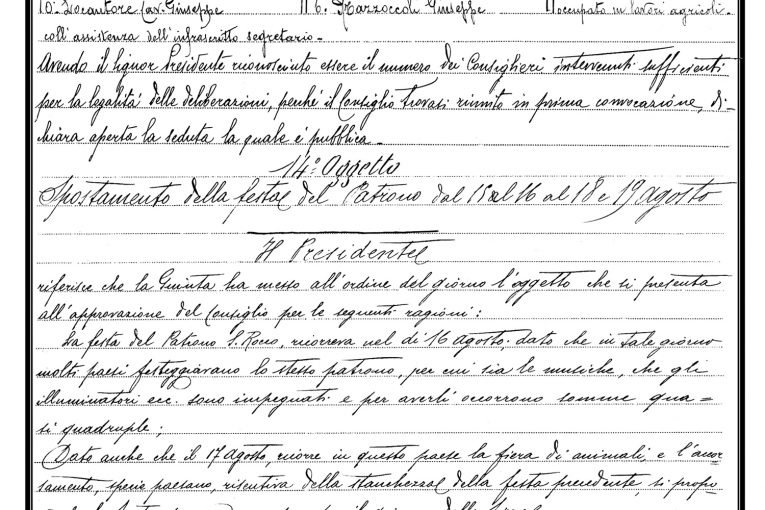 10° Locantore Cav. Giuseppe 6. Mazzoccoli Giuseppe occupato in lavori agricoli.
coll'assistenza dell'infrascritto segretario.
Avendo il Signor Presidente riconosciuto essere il numero dei Consiglieri intervenuti sufficienti
per la legalità delle deliberazioni, perchè il Consiglio trovasi riunito in prima convocazione, di-
chiara aperta la seduta la quale è pubblica.
14° Oggetto
Spostamento della festa del Patrono dal 15 al 16 al 18 e 19 agosto
Il Presidente
riferisce che la Giunta ha messo all'ordine del giorno l'oggetto che si presenta
all'approvazione del Consiglio per le seguenti ragioni:
La festa del Patrono S. Rocco, ricorreva nel dì 16 agosto. dato che in tale giorno
molti paesi festeggiavano lo stesso patrono, per cui sia le musiche, che gli
illuminatori ecc. sono impegnati e per averli occorrono somme qua=
si quadruple;
Dato anche che il 17 agosto, ricorre in questo paese la fiera di animali, e l'
samento, specie paesano, risentiva della stanchezza della festa precedente, si propo